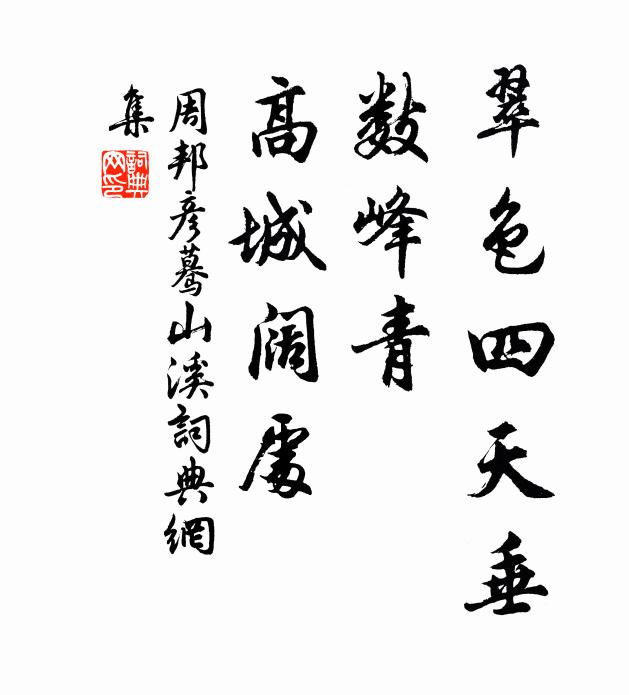 翠色四天垂
數峰青
高城闊處
周邦彦驀山溪詞典網
集
詞典
网印